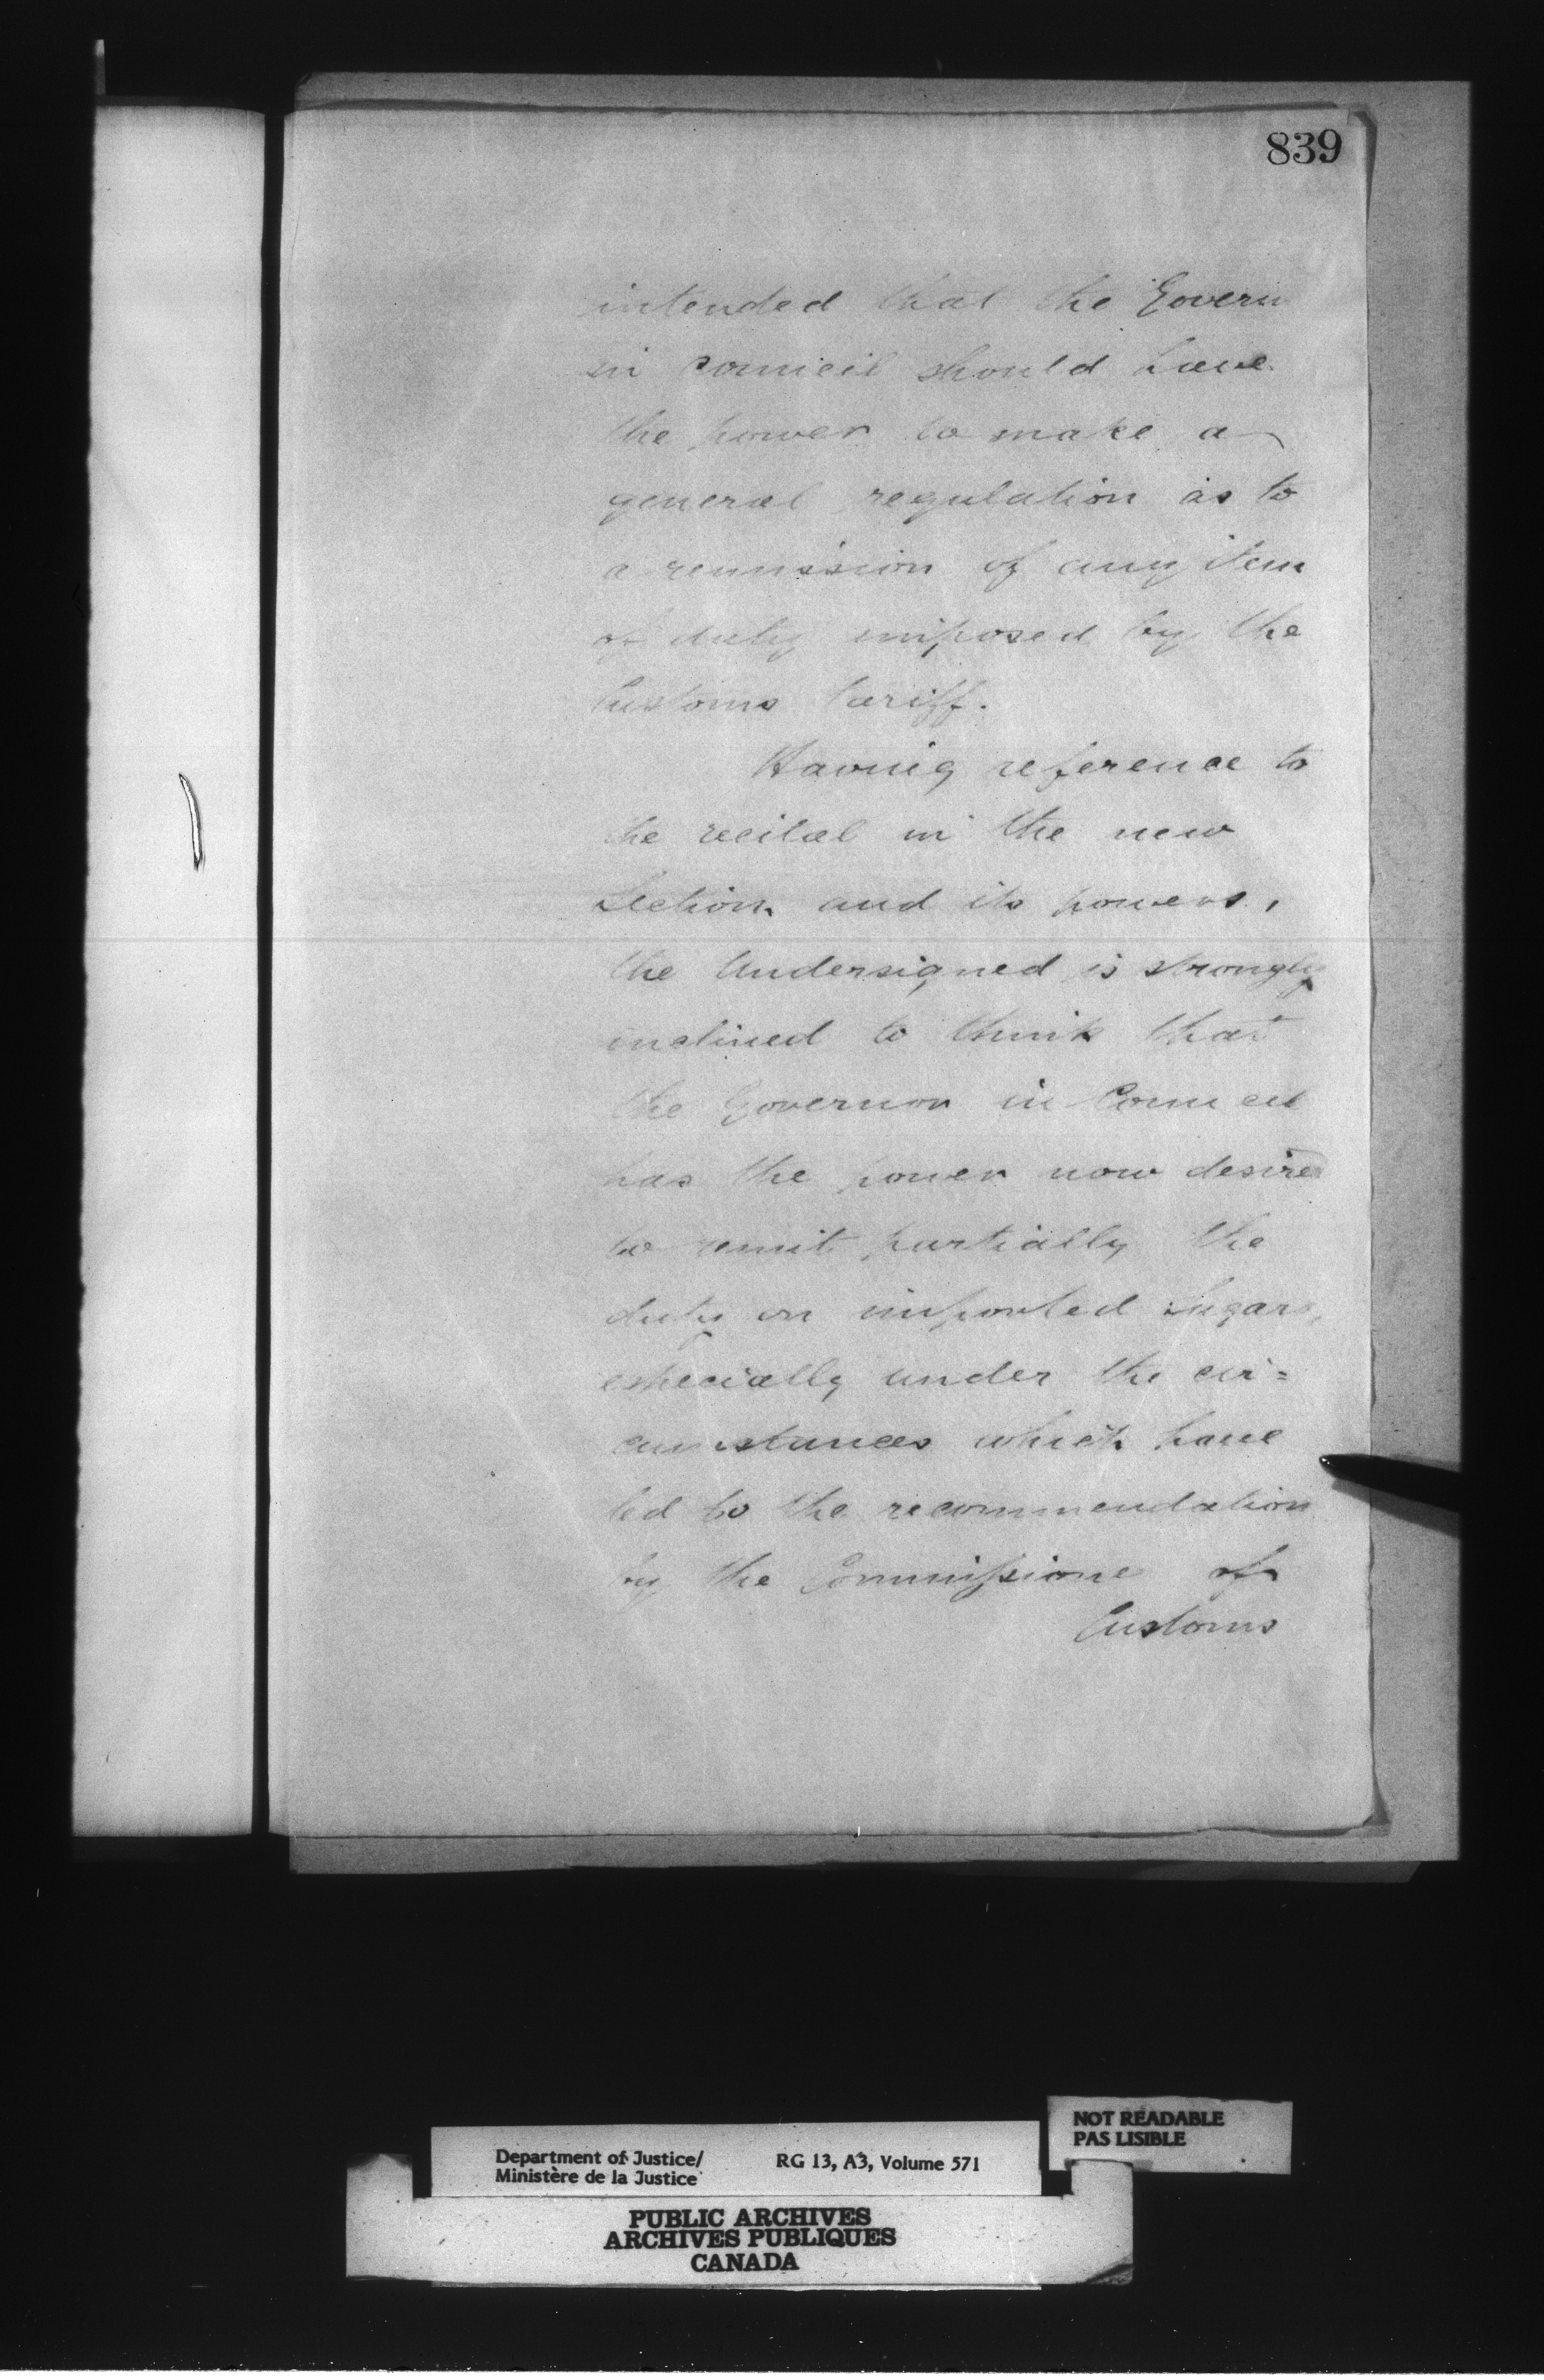 839
intended that the Govern
in Council should have
the power to make a
general regulation as to
a remission of any item
of duty imposed by the
Customs tariff.
Having reference to
the recital in the new
Section and its powers,
the Undersigned is strongly
inclined to think that
the Governor in Council
has the power now desired
to remit partially the
duty on imported sugars,
especially under the cir=
cumstances which have
led to the recommendation
by the Commissione of
Customs
NOT READABLE
PAS LISIBLE
Department of Justice/
Ministère de la Justice
RG 13, A3, Volume 571
PUBLIC ARCHIVES
ARCHIVES PUBLIQUES
CANADA